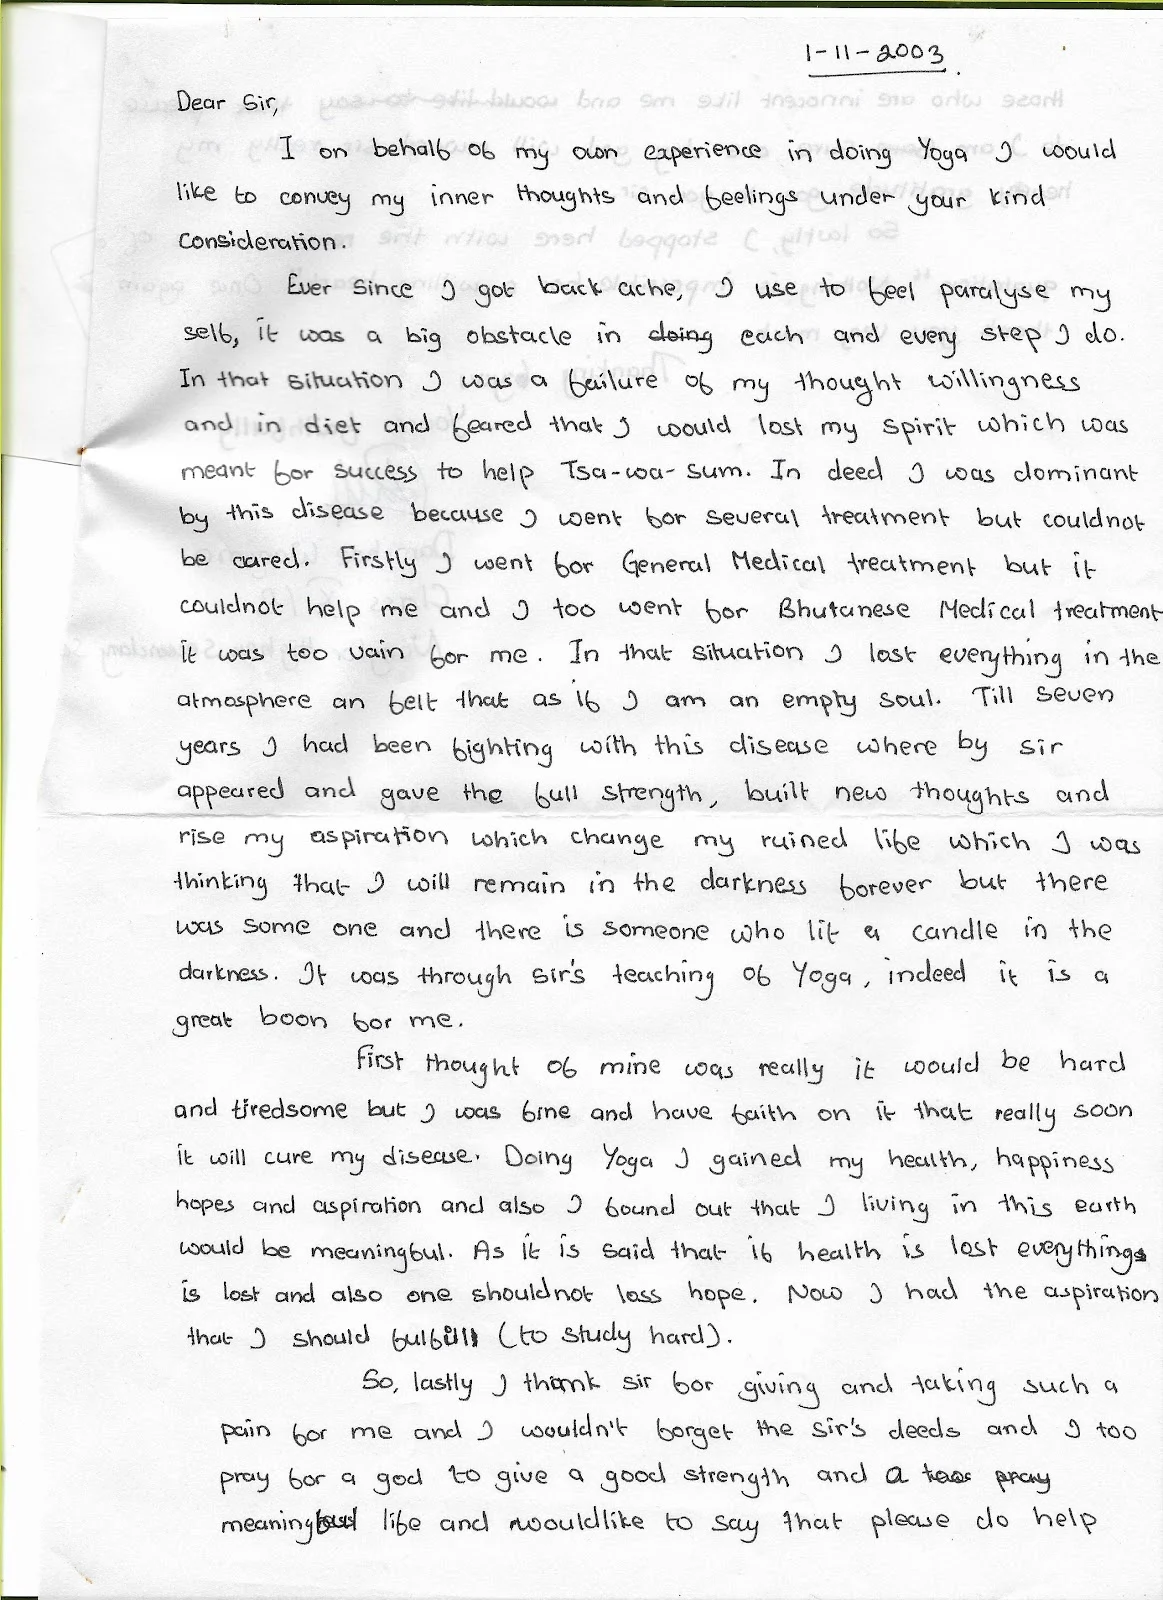 1-11-2003
Dear Sir,
I on behalf of my own experience in doing Yoga I would
like to convey my inner thoughts and feelings under your kind
consideration.
Ever since I got back ache, I use to feel paralyse my
self, it was a big obstacle in doing each and every step I do.
In that situation I was a failure of my thought willingness
and in diet and feared that I would lost my spirit which was
meant for success to help Tsa-wa-sum. In deed I was dominant
by this disease because I went for several treatment but couldnot
be cured. Firstly I went for General Medical treatment but it
couldnot help me and I too went for Bhutanese Medical treatment
it was too vain for me. In that situation I lost everything in the
atmosphere an felt that as if I am an empty soul. Till seven
years I had been fighting with this disease where by sir
appeared and gave the full strength, built new thoughts and
rise my aspiration which change my ruined life which I was
thinking that I will remain in the darkness forever but there
was some one and there is someone who lit a candle in the
darkness. It was through sir's teaching of Yoga, indeed it is a
great boon for me.
First thought of mine was really it would be hard
and tiredsome but I was fine and have faith on it that really soon
it will cure my disease. Doing Yoga I gained my health, happiness
hopes and aspiration and also I found out that I living in this earth
would be meaningful. As it is said that if health is lost everythings
is lost and also one shouldnot loss hope. Now I had the aspiration
that I should fulfill (to study hard).
So, lastly I thank sir for giving and taking such a
pain for me and I wouldn't forget the sir's deeds and I too
pray for a god to give a good strength and a too pray
meaningful life and wouldlike to say that please do help